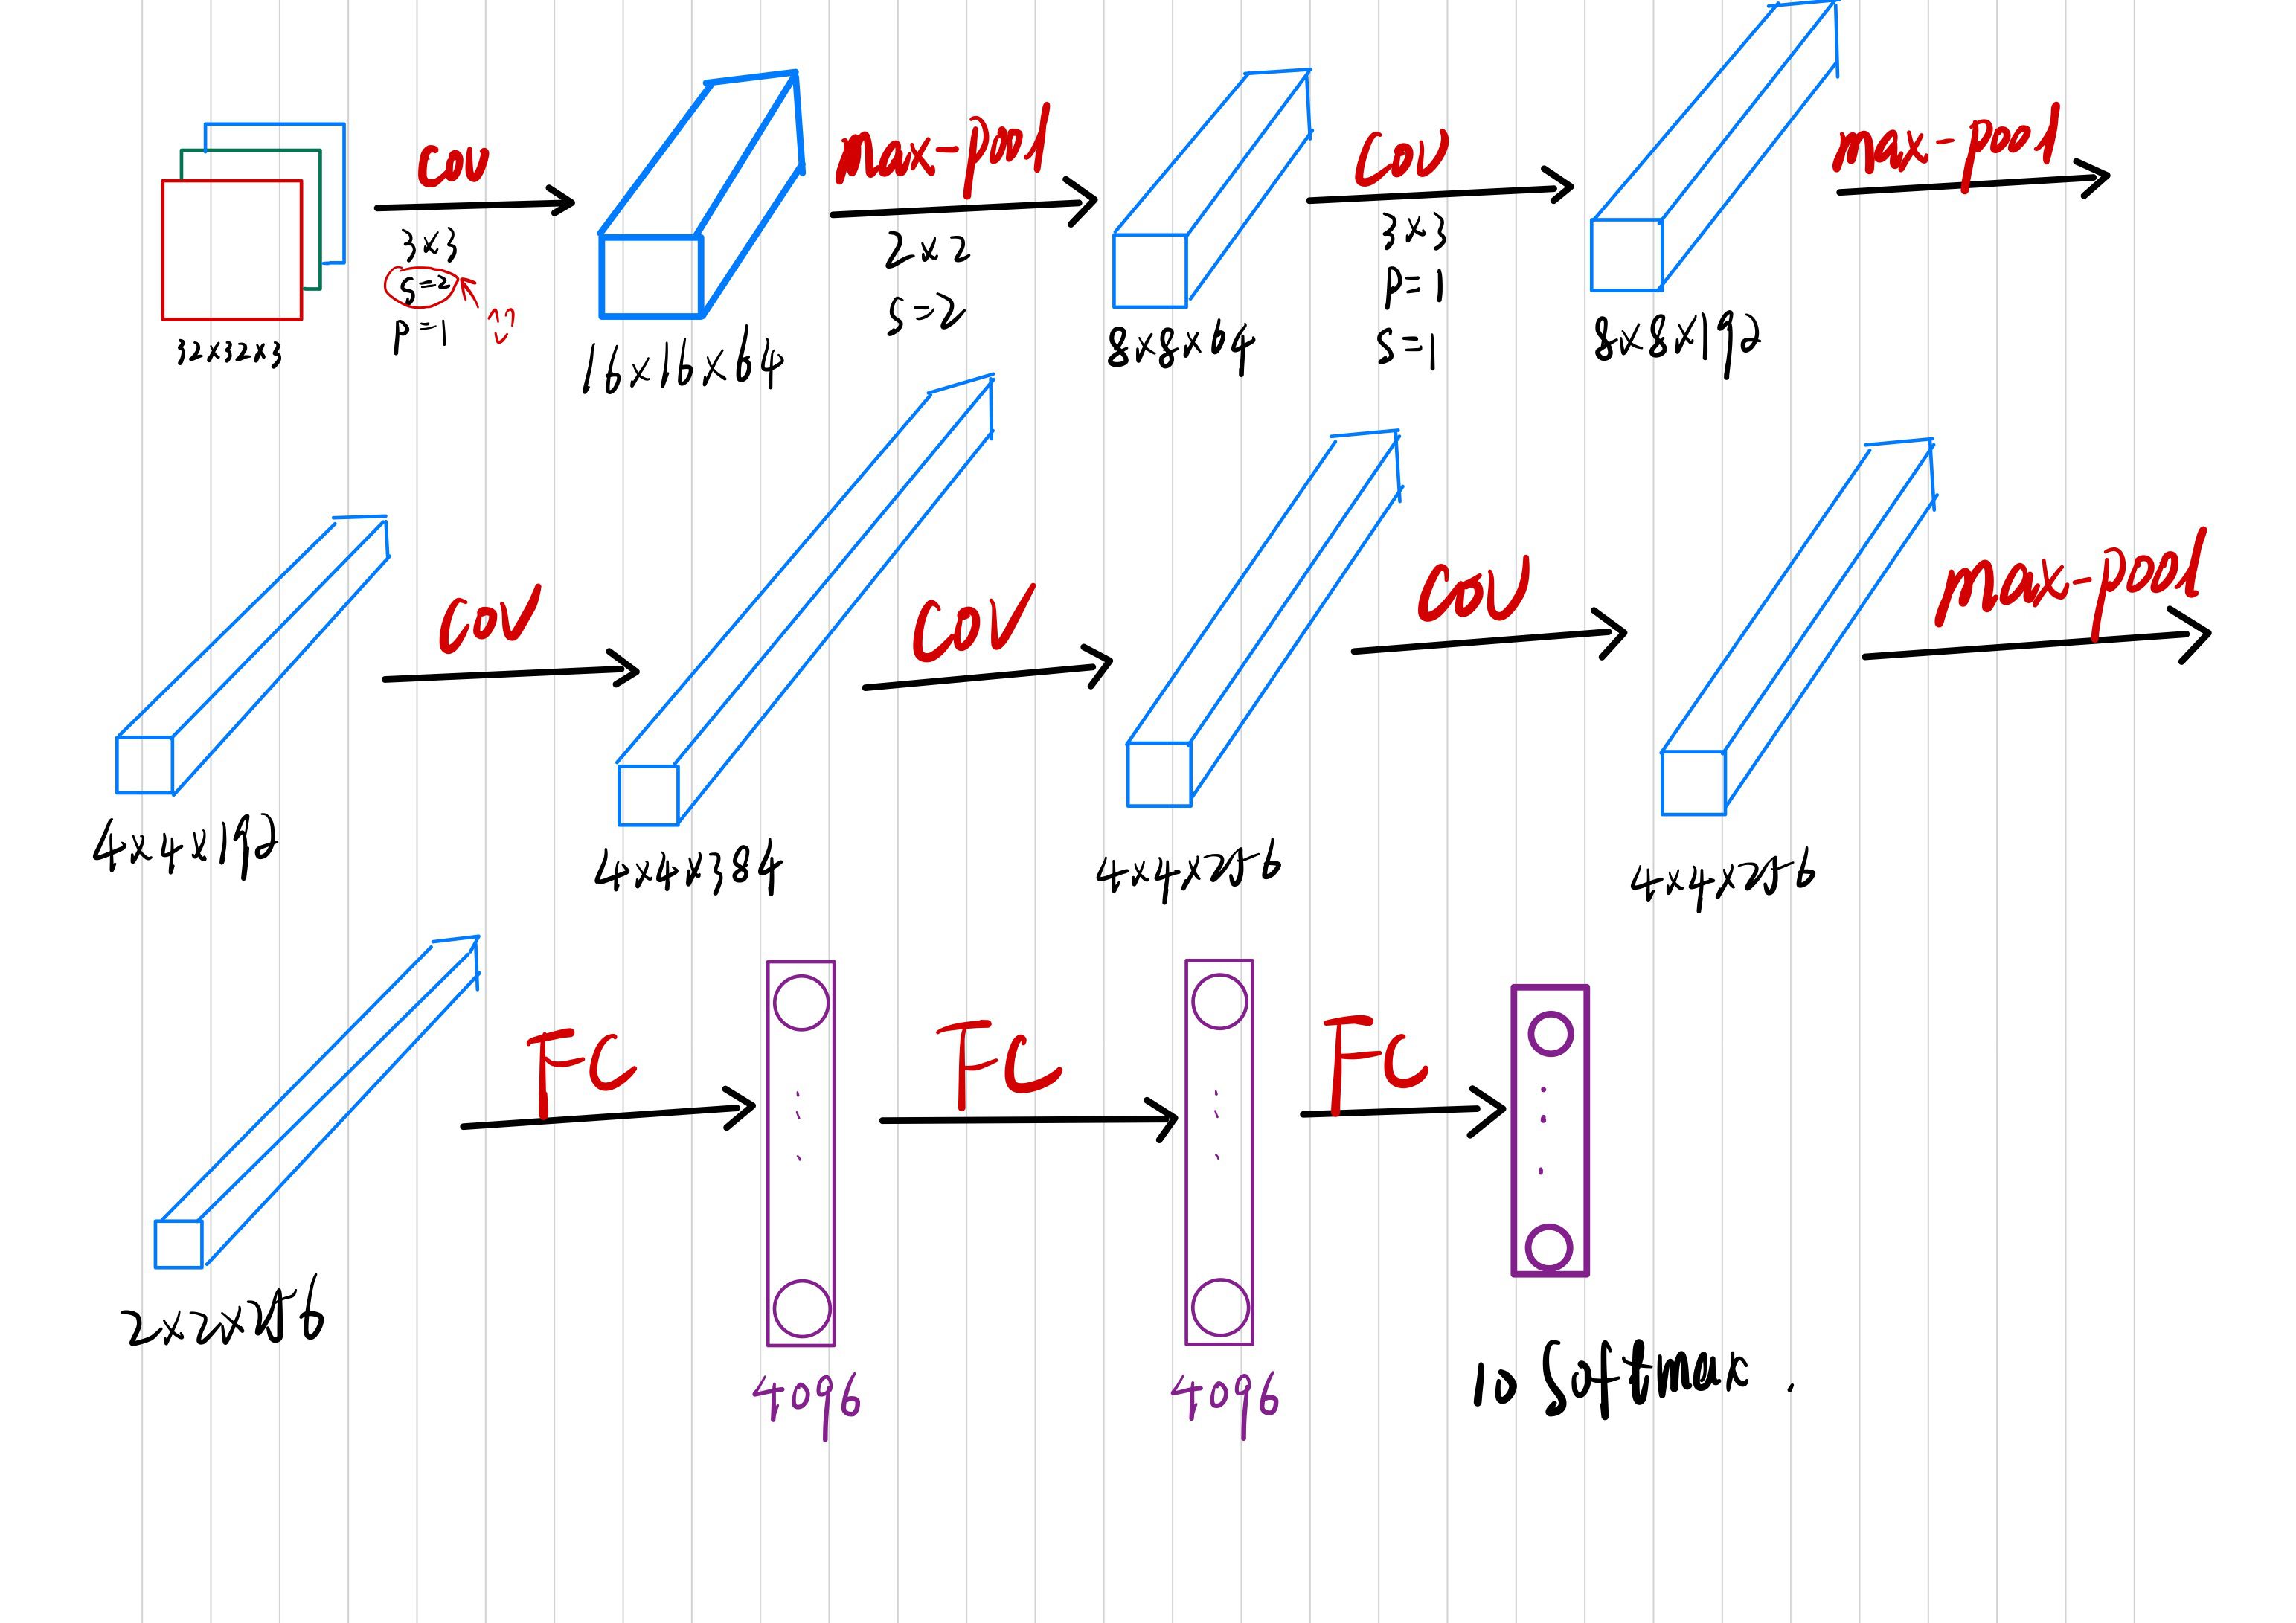 cov
3×3
s=2
p=1
32×32×3
16×16×64
max-pool
2×2
s=2
8×8×64
cov
3×3
p=1
s=1
8×8×192
max-pool
4×4×192
cov
4×4×384
cov
4×4×256
cov
4×4×256
max-pool
2×2×256
FC
4096
FC
4096
FC
10 Softmax.